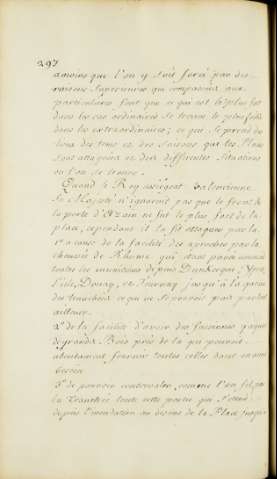 297
amoins que l'on y soit forcé par des
raisons superieures qui composées aux
particulieres font que ce qui est le plus fort
dans les cas ordinaires se trouve le plus foible
dans les extraordinaires; ce qui se prend du
lieu des tems et des saisons que les Places
sont attaquées et des differentes situations
ou l'on se trouve.
Quand le Roy assiegeat Valencienne
Sa Majesté n'ignoroit pas que le front de
la porte d'Anzain ne fut le plus fort de la
place, cependant il la fit attaquer par la
1° a cause de la facilité des aproches par la
chaussée de qui etant pavée amenoit
toutes les munitions depuis Dunkerque, Ypre,
Lille, Douay, et Tournay jusqu'a la queue
des tranchées ce qui ne se pouvoit pas
ailleurs.
2° de la facilité d'avoir des fascines
de grands Bois près de la qui pouvoit
abondament fournir toutes celles dont on avoit
besoin
3° de pouvoir contrevaler, comme l'on fit par
la tranchée toute cette partie qui s'etend
depuis l'inondation au dessus de la Place jusqu'a